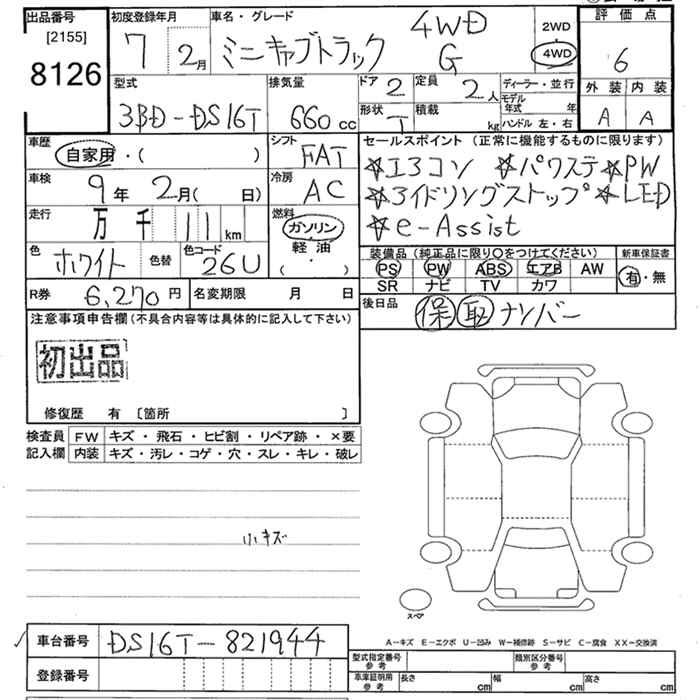 出品番号
[2155]
8126
初度登録年月
7 2月
車名・グレード
ミニキャブトラック 4WD G
2WD
4WD
評価点
6
外装 内装
A A
型式
3BD-DS16T
排気量
660cc
ドア 2
定員 2人
形状 T
積載 kg
ディーラー・並行
モデル年式 年
ハンドル 左・右
車歴
自家用・( )
シフト
FAT
車検
9年 2月( 日)
冷房
AC
走行
万 千 11 km
燃料
ガソリン
軽油
( )
色
ホワイト
色替
色コード
26U
セールスポイント (正常に機能するものに限ります)
☆エ3コン ☆パワステ☆PW
☆3イドリングストップ☆LED
☆e-Assist
装備品 (純正品に限り○をつけてください)
PS PW ABS エアB AW
SR ナビ TV カワ
新車保証書
有・無
R券 6,270円
名変期限 月 日
後日品
保 取 ナンバー
注意事項申告欄 (不具合内容等は具体的に記入して下さい)
初出品
修復歴 有 [箇所 ]
検査員記入欄
FW キズ・飛石・ヒビ割・リペア跡・×要
内装 キズ・汚レ・コゲ・穴・スレ・キレ・破レ
小キズ
スペア
A-キズ E-エクボ U-凹み W-補修跡 S-サビ C-腐食 XX-交換済
車台番号 DS16T-821944
登録番号
型式指定番号 参考
類別区分番号 参考
車庫証明用 参考
長さ cm 幅 cm 高さ cm